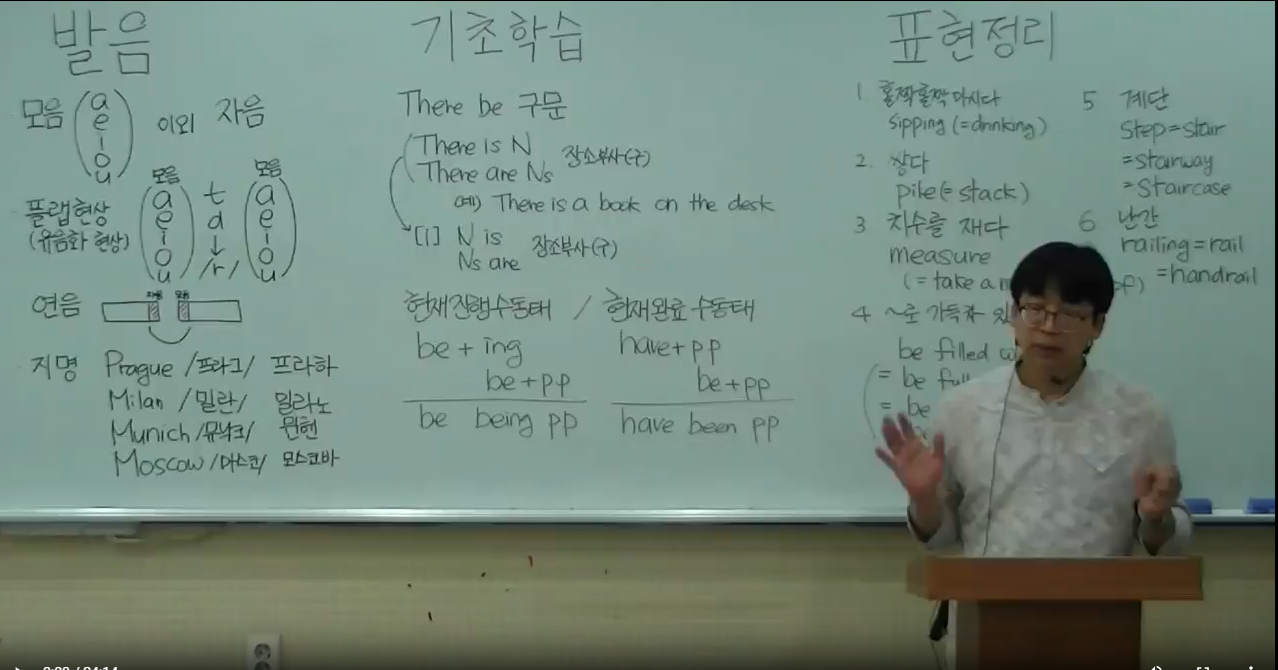 발음
모음 (a e i o u) 이외 자음
플랩현상
(유음화 현상)
모음 (a e i o u)
t
d
↓
/r/
모음 (a e i o u)
연음 자음 모음
지명 Prague /프라그/ 프라하
Milan /밀란/ 밀라노
Munich /뮤닉크/ 뮌헨
Moscow /마스코/ 모스코바
기초학습
There be 구문
There is N
There are Ns 장소부사(구)
예) There is a book on the desk
[i] N is
Ns are 장소부사(구)
현재진행수동태 / 현재완료 수동태
be + ing
be + pp
be being pp
have + pp
be + pp
have been pp
표현정리
1. 홀짝홀짝 마시다
sipping (=drinking)
2. 쌓다
pile (= stack)
3 치수를 재다
measure
(= take a
of)
4 ~로 가득차
be filled
= be
= be
5 계단
step = stair
= stairway
= staircase
6 난간
railing = rail
= handrail